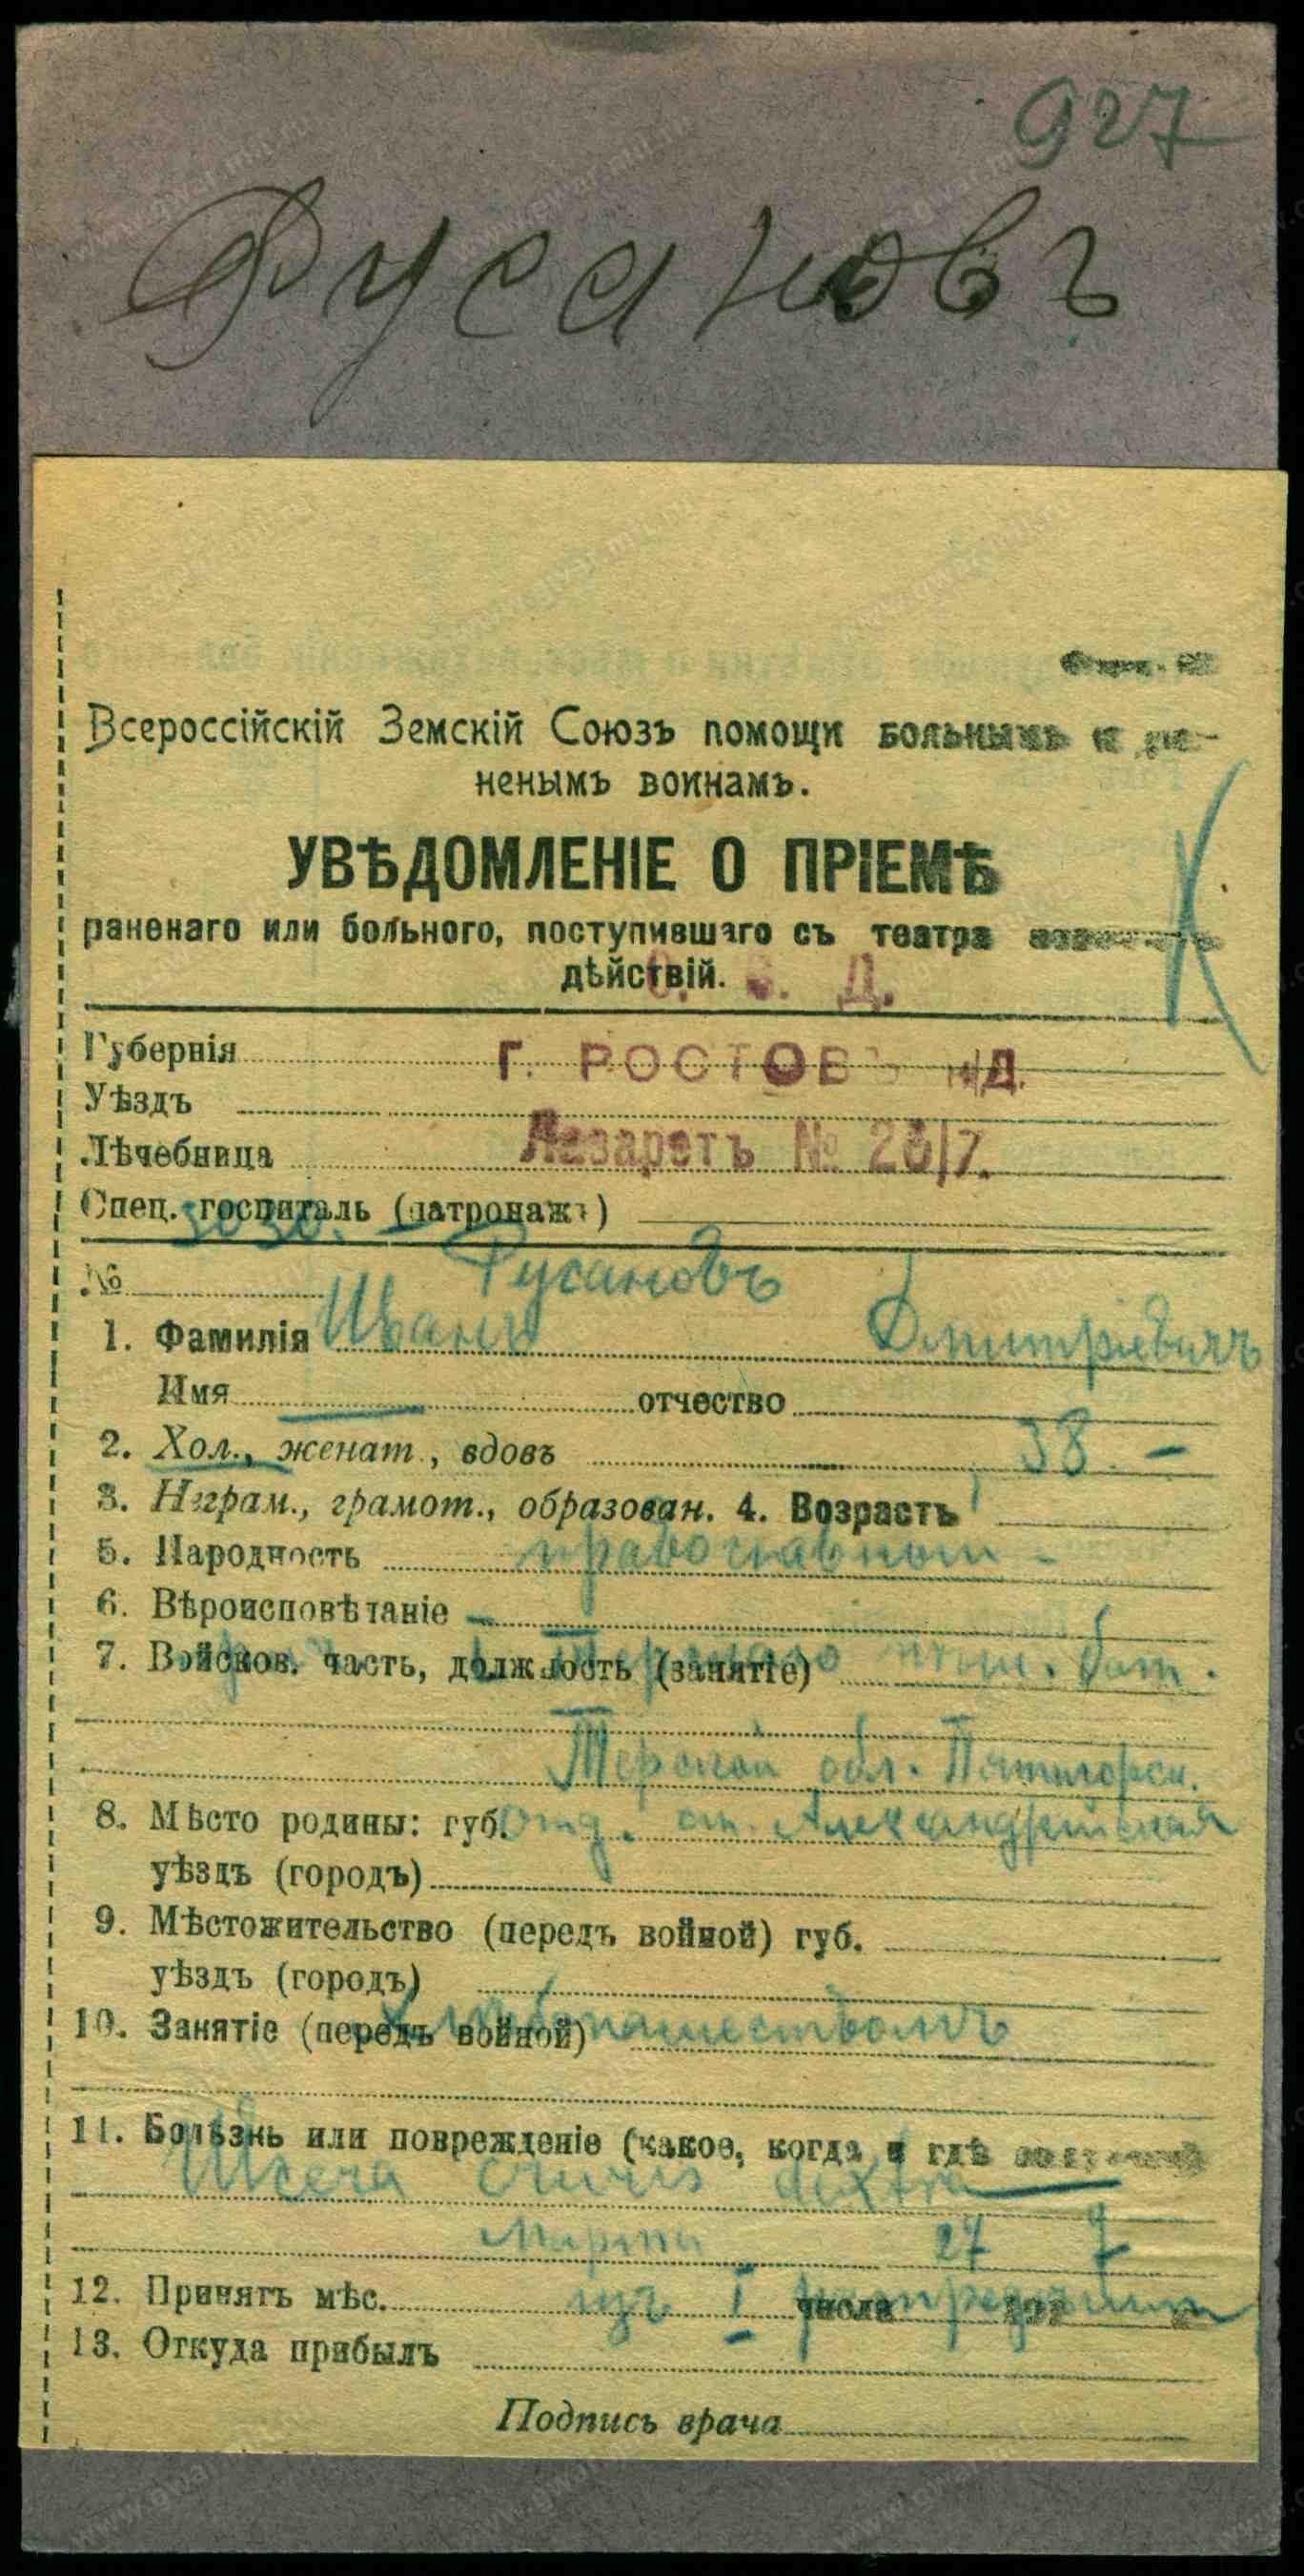 927
Русановъ
Всероссійскій Земскій Союзъ помощи больнымъ и ра-
ненымъ воинамъ.
УВѢДОМЛЕНІЕ О ПРІЕМѢ
раненаго или больного, поступившаго съ театра
дѣйствій.
Губернія Г. РОСТОВЪ н/Д.
Уѣздъ
Лѣчебница Лазаретъ № 26/7.
Спец. госпиталь (патронажъ)
№ Русановъ
1. Фамилія Иванъ Дмитріевичъ
Имя отчество
2. Хол., женат., вдовъ 38. –
3. Нграм., грамот., образован. 4. Возрастъ
5. Народность православ
6. Вѣроисповѣтаніе
7. Войсков. часть, должность (занятіе) бат.
Терской обл. Пятигорск.
8. Мѣсто родины: губ. отд. ст. Александрійская
уѣздъ (городъ)
9. Мѣстожительство (передъ войной) губ.
уѣздъ (городъ)
10. Занятіе (передъ войной) Хлѣбопашествомъ
11. Болѣзнь или поврежденіе (какое, когда и гдѣ
Ulcera cruris dextra
Марта 27 7
12. Принятъ мѣс. изъ I числа
13. Откуда прибылъ
Подпись врача